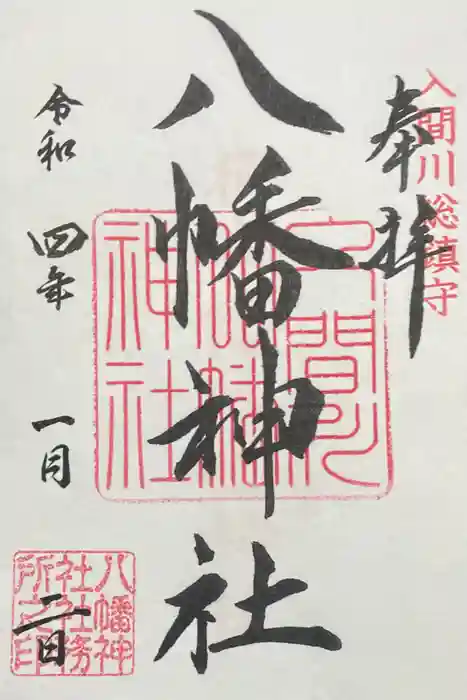 入間川総鎮守
奉拝
八幡神社
入間川
八幡
神社
令和四年一月二日
八幡神
社社務
所之印